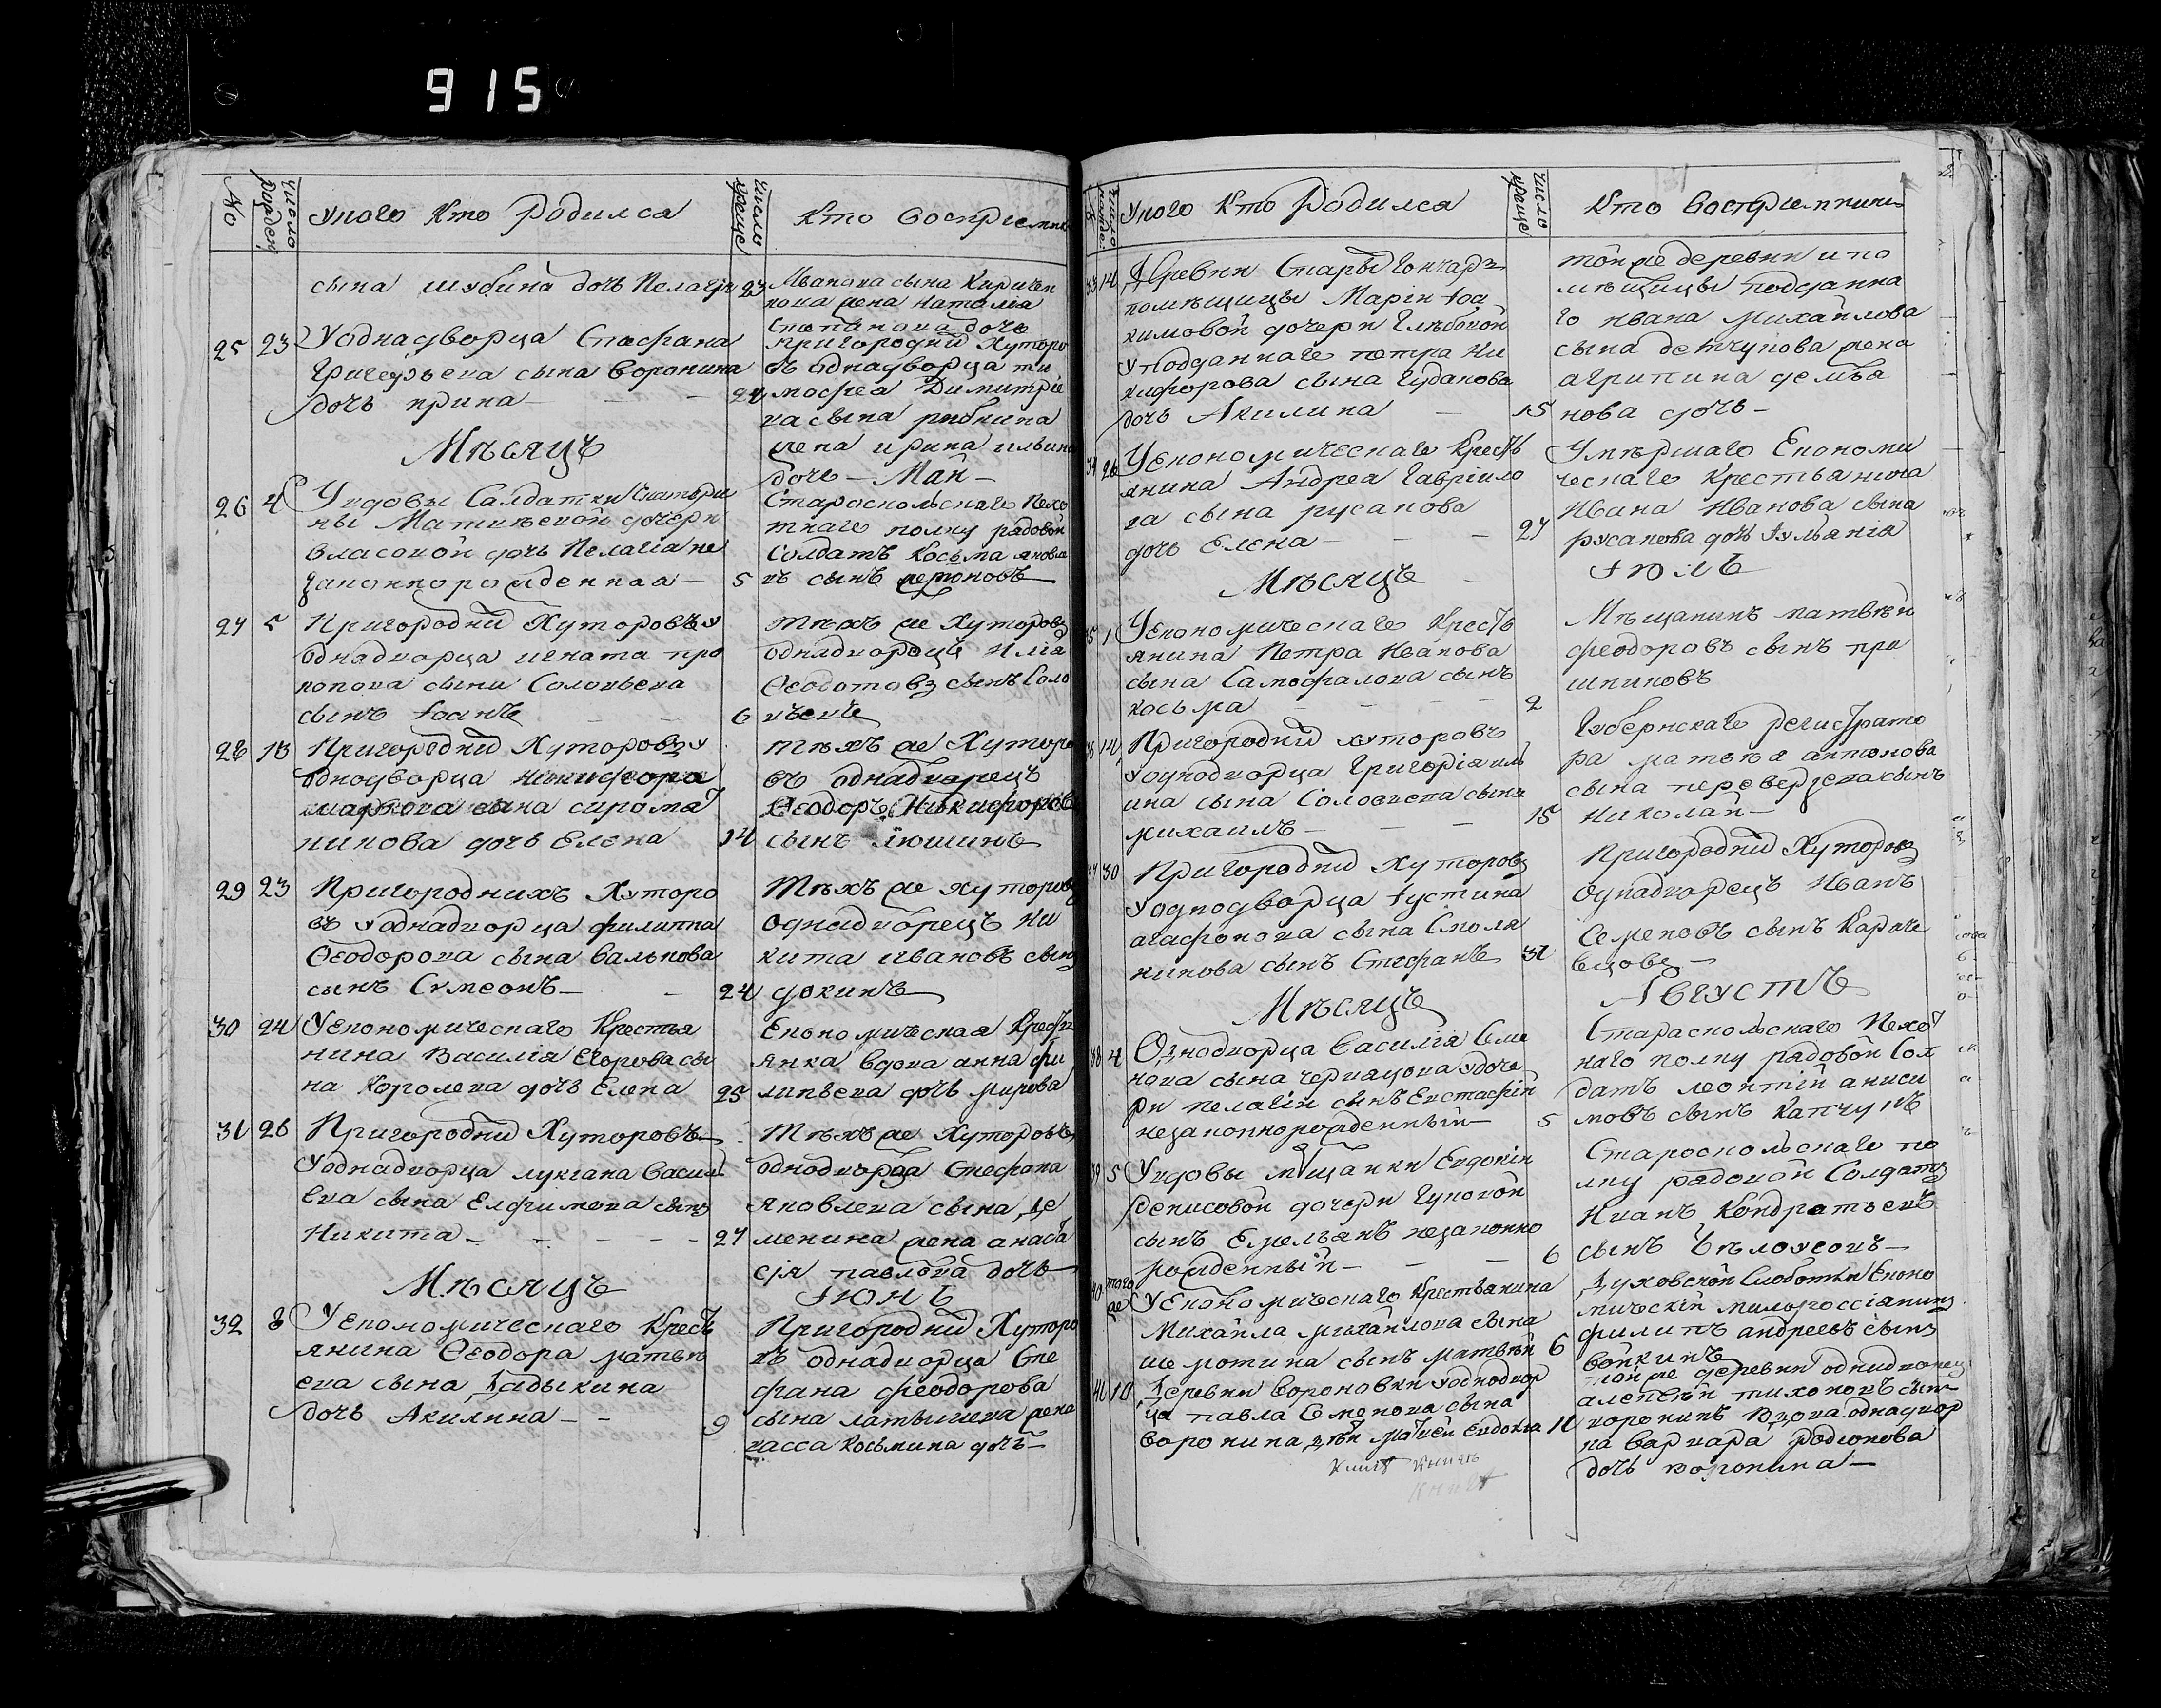 915
No
число рожден
Уного кто родился
число креще
Кто восприемник
сына шубина дочь Пелагия 23
Иванова сына Киричен
кова жена наталиа
Степанова дочь
25 23 Уоднадворца Стефана
Григорьева сына Воронина
дочь ирина 24
пригородних Хуторо
въ однадворца ти
мофея Димитрие
ва сына рибкина
жена ирина ильина
дочь
Мѣсяцъ
Май
26 4 Увдовы Салдатки Екатери
ны Матвѣевой дочери
власовой дочь Пелагиа не
законнорожденная 5
Староскольскаго пехо
тнаго полку рядовой
Солдатъ Косьма яковле
въ сынъ
27 5 Пригородних Хуторовъ у
однадворца игната про
копова сына Соловьева
сынъ Iоаннъ 6
тѣхъ же Хуторовъ
однадворецъ Илиа
Ѳеодотовъ сынъ Соло
вьевъ
28 13 Пригородних Хуторовъ у
однодворца Никифора
маркова сына сирома
никова дочь Елена 14
тѣхъ же Хуторо
въ однадворецъ
Ѳеодоръ Никифоров
сынъ
29 23 Пригороднихъ Хуторо
въ уоднадворца филиппа
Ѳеодорова сына Валькова
сынъ Симеонъ 24
Тѣхъ же хуторовъ
однадворецъ ни
кита ивановъ сынъ
фокинъ
30 24 Уекономическаго Крестья
нина Василiя Егорова сы
на Королева дочь Елена 25
Економическая Кресть
янка вдова анна фи
липьева дочь
31 26 Пригородних Хуторовъ
Уоднадворца лукиана Васил
ева сына Елфимова сынъ
Никита 27
Тѣхъ же Хуторовъ
однодворца Стефана
Яковлева сына Де
менина жена анаста
сiя павлова дочь
Мѣсяцъ
Iюнь
32 8 Уекономическаго Кресть
янина Ѳеодора матвѣ
ева сына Гадыкина
дочь Акилина 9
Пригородних Хуторо
въ однадворца Сте
фана феодорова
сына латышева жена
васса косьмина дочь
Уного кто Родился
число креще
Кто восприемники
33 14 Деревни Стары Гончаръ
помѣщицы Марiи Iоа
кимовой дочери Глѣбовой
уподданнаго петра ни
кифорова сына Гуданова
дочь Акилина 15
той же деревни и по
мѣщицы подданна
го ивана михайлова
сына жена
агрипина демьа
нова дочь
34 26 Уекономическаго Кресть
янина Андрея Гаврiило
ва сына русанова
дочь Елена 27
Умѣршаго Економи
ческаго Крестьянина
Ивана Иванова сына
русанова дочь Iулианiя
Мѣсяцъ
Iюль
35 1 Уекономическаго Кресть
янина Петра Иванова
сына Самофалова сынъ
косьма 2
Мѣщанинъ матвѣй
феодоровъ сынъ
36 14 Пригородних хуторовъ
уоднодворца Григорiя иль
ина сына Соловиета сынъ
михаилъ 15
Губернскаго регистрато
ра матвѣя антонова
сына сынъ
Николай
37 30 Пригородних Хуторовъ
уоднодворца Iустина
агафонова сына Смоля
никова сынъ Стефанъ 31
Пригородних Хуторовъ
однадворецъ Иванъ
Семеновъ сынъ Караче
вцовъ
Мѣсяцъ
Августъ
38 4 Однодворца Василiя Семе
нова сына чернцова удоче
ри пелагiи сынъ Евстафiй
незаконнорожденный 5
Стараскольскаго пехот
наго полку рядовой Сол
датъ леонтiй аниси
мовъ сынъ
39 5 Увдовы мѣщанки Евдокiи
денисовой дочери Гуповой
сынъ Емельянъ незаконно
рожденный 6
Староскольскаго по
лку рядовой Солдатъ
Иванъ Кондратьевъ
сынъ бѣлоусовъ
40 того же Уекономическаго Крестьянина
Михаила михайлова сына
шемотина сынъ матвѣй 6
Духовской слободы Економ
ическiй малороссiянинъ
филипъ андреевъ сынъ
бойкинъ
41 10 Деревни вороновки уоднодвор
ца павла Семенова сына
воронина дѣти Евдокиа 11
той же деревни однадворец
алексѣй тихоновъ сынъ
воронинъ вдова однадвор
ка варвара родионова
дочь воронина